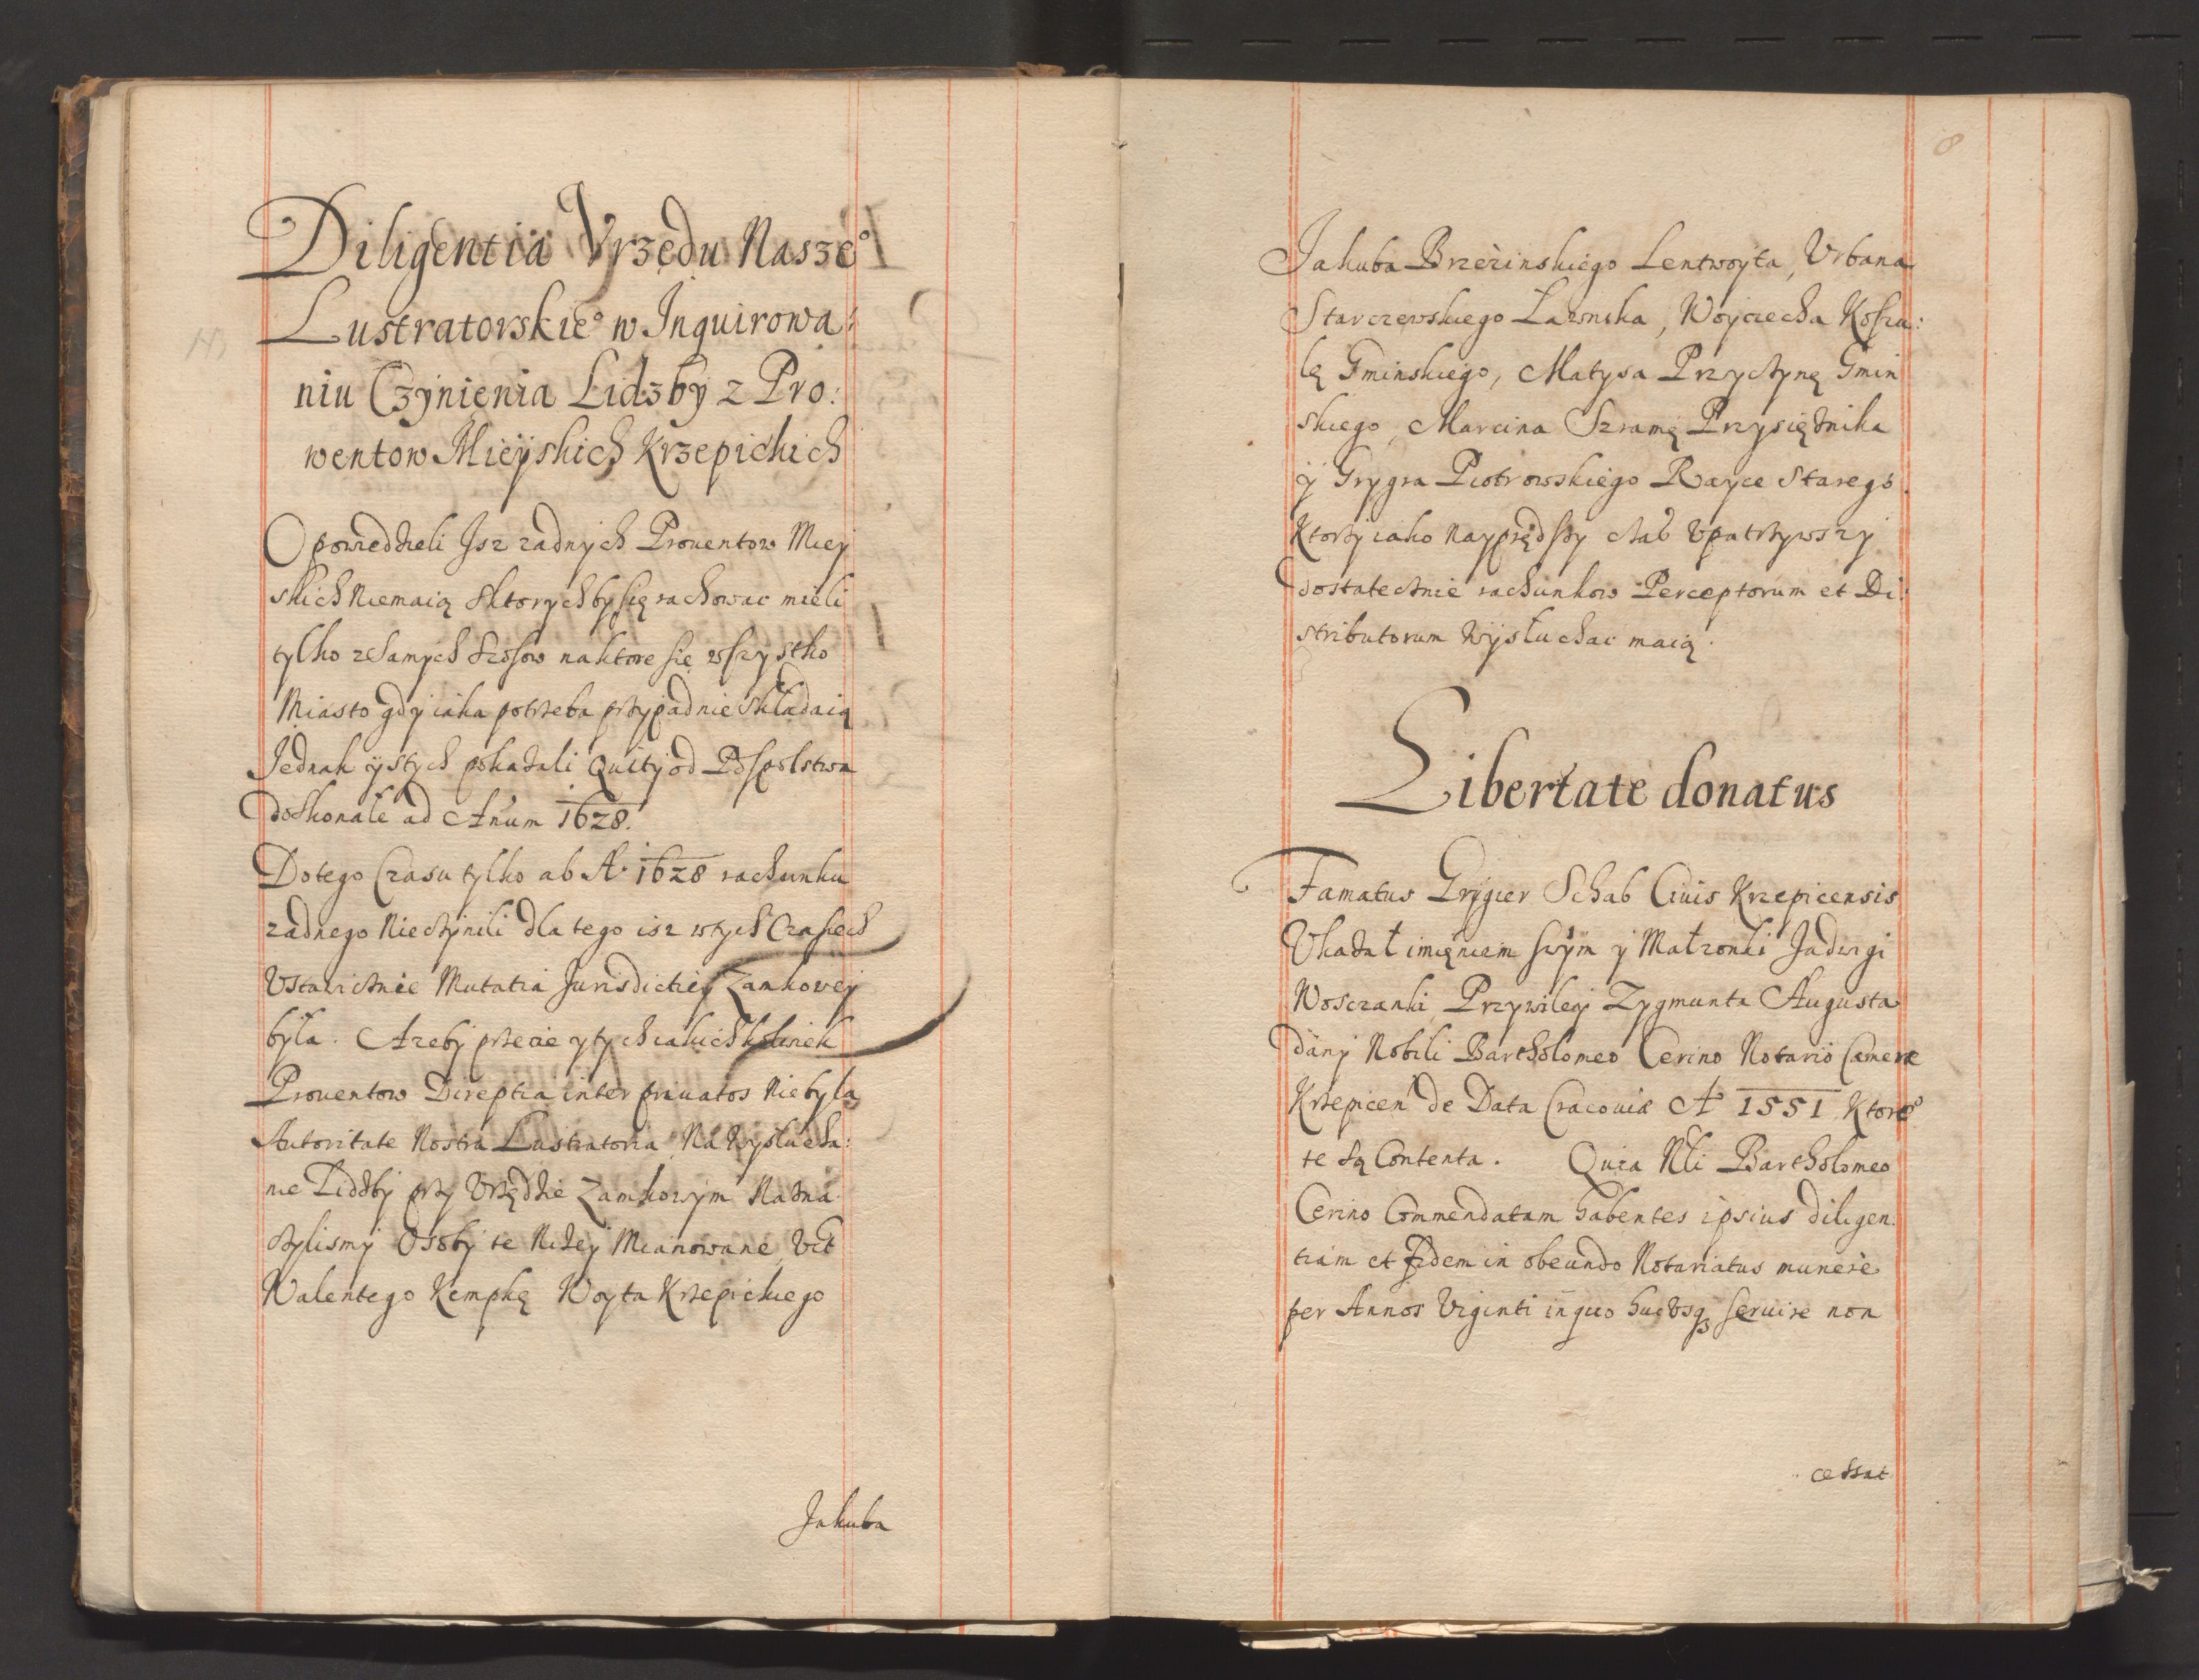 Diligentia Vrzędu Nasze°
Lustratorskie° w Inquirowa:
niu Czynienia Lidzby z Pro:
wentow Mieyskich Krzepickich
Opowiedzieli Isz zadnych Prouentow Miey
skich Niemaią Sktorychby się rachowac mieli
tylko zSamych Szosow naktore się wszystko
Miasto gdy iaka potrzeba przypadnie składaią
Jednak ystych pokazali Quity od Pospolstwa
doskonałe ad Anum 1628.
Dotego Czasu tylko ab A° 1628 rachunku
zadnego Nieczynili dla tego isz wtych Czasiech
Vstawicznie Mutatia Jurisdictiey Zamkowey
była. Azeby przecie ytych iakichkolwiek
Prouentow Direptia inter priuatos Niebyla
Autoritate Nostra Lustratoria Na Wysłucha:
nie Lidzby przy Vrzędzie Zamkowym Nazna
czylismy Osoby te Niżey Mianowane, Vct
Walentego Kempkę Woyta Krzepickiego
Jakuba
8
Jakuba Brzezinskiego Lentwoyta, Vrbana
Starczewskiego Ławnika, Woyciecha Koszu:
lę Gminskiego, Matysa Przyczynę Gmin
skiego, Marcina Szramę Przysiężnika
y Grygra Piotrowskiego Rayce Starego.
Ktorzy iako Nayprędszy czas Vpatrzywszy
dostatecznie rachunkow Perceptorum et Di:
stributorum Wysłuchac maią.
Libertate donatus
Famatus Grygier Schab Ciuis Krzepicensis
Vkazał imięniem swym y Małzonki Jadwigi
Wosczanki Przywiley Zygmunta Augusta
dany Nobili Bartholomeo Cerino Notario Cameræ
Krzepicen de Data Cracouiæ A° 1551 Ktore°
te są Contenta. Quia Nli Bartholomeo
Cerino Commendatam habentes ipsius diligen:
tiam et Fidem in obeundo Notariatus munere
per Annos Viginti inquo hucvsq3 seruire non
cessat